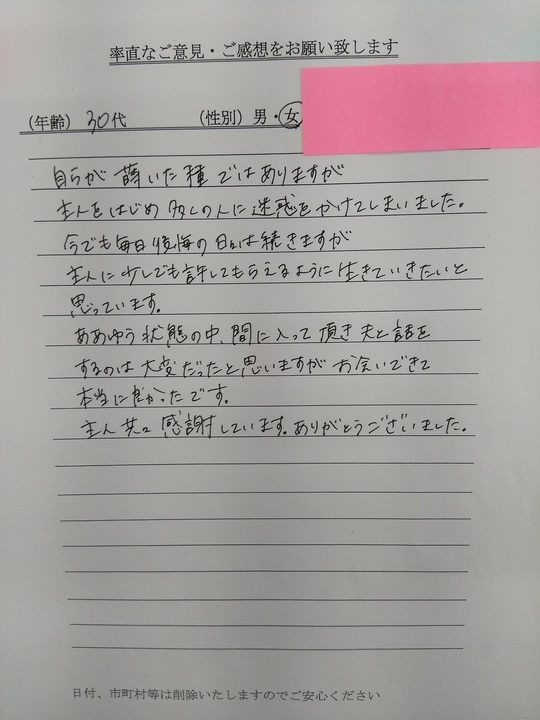 率直なご意見・ご感想をお願い致します
(年齢) 30代 (性別) 男・女
自らが蒔いた種ではありますが
主人をはじめ多くの人に迷惑をかけてしまいました。
今でも毎日後悔の日々は続きますが
主人に少しでも許してもらえるように生きていきたいと
思っています。
ああゆう状態の中、間に入って頂き夫と話を
するのは大変だったと思いますがお会いできて
本当に良かったです。
主人共々感謝しています。ありがとうございました。
日付、市町村等は削除いたしますのでご安心ください